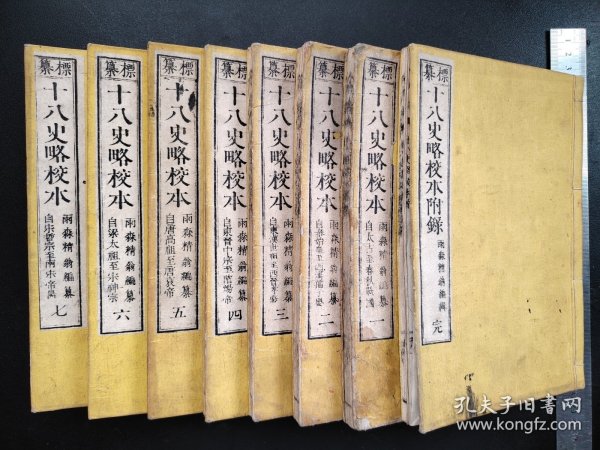 標纂
十八史略校本附錄
雨森精翁編輯
完
標纂
十八史略校本
雨森精翁編纂
自太古至春秋戰國
一
標纂
十八史略校本
雨森精翁編纂
二
標纂
十八史略校本
雨森精翁編纂
三
標纂
十八史略校本
雨森精翁編纂
自東晉中宗至隋煬帝
四
標纂
十八史略校本
雨森精翁編纂
自唐高祖至唐哀帝
五
標纂
十八史略校本
雨森精翁編纂
自梁太祖至宋神宗
六
標纂
十八史略校本
雨森精翁編纂
自宋哲宗至南宋帝昺
七
孔夫子旧书网
www.kongfz.com